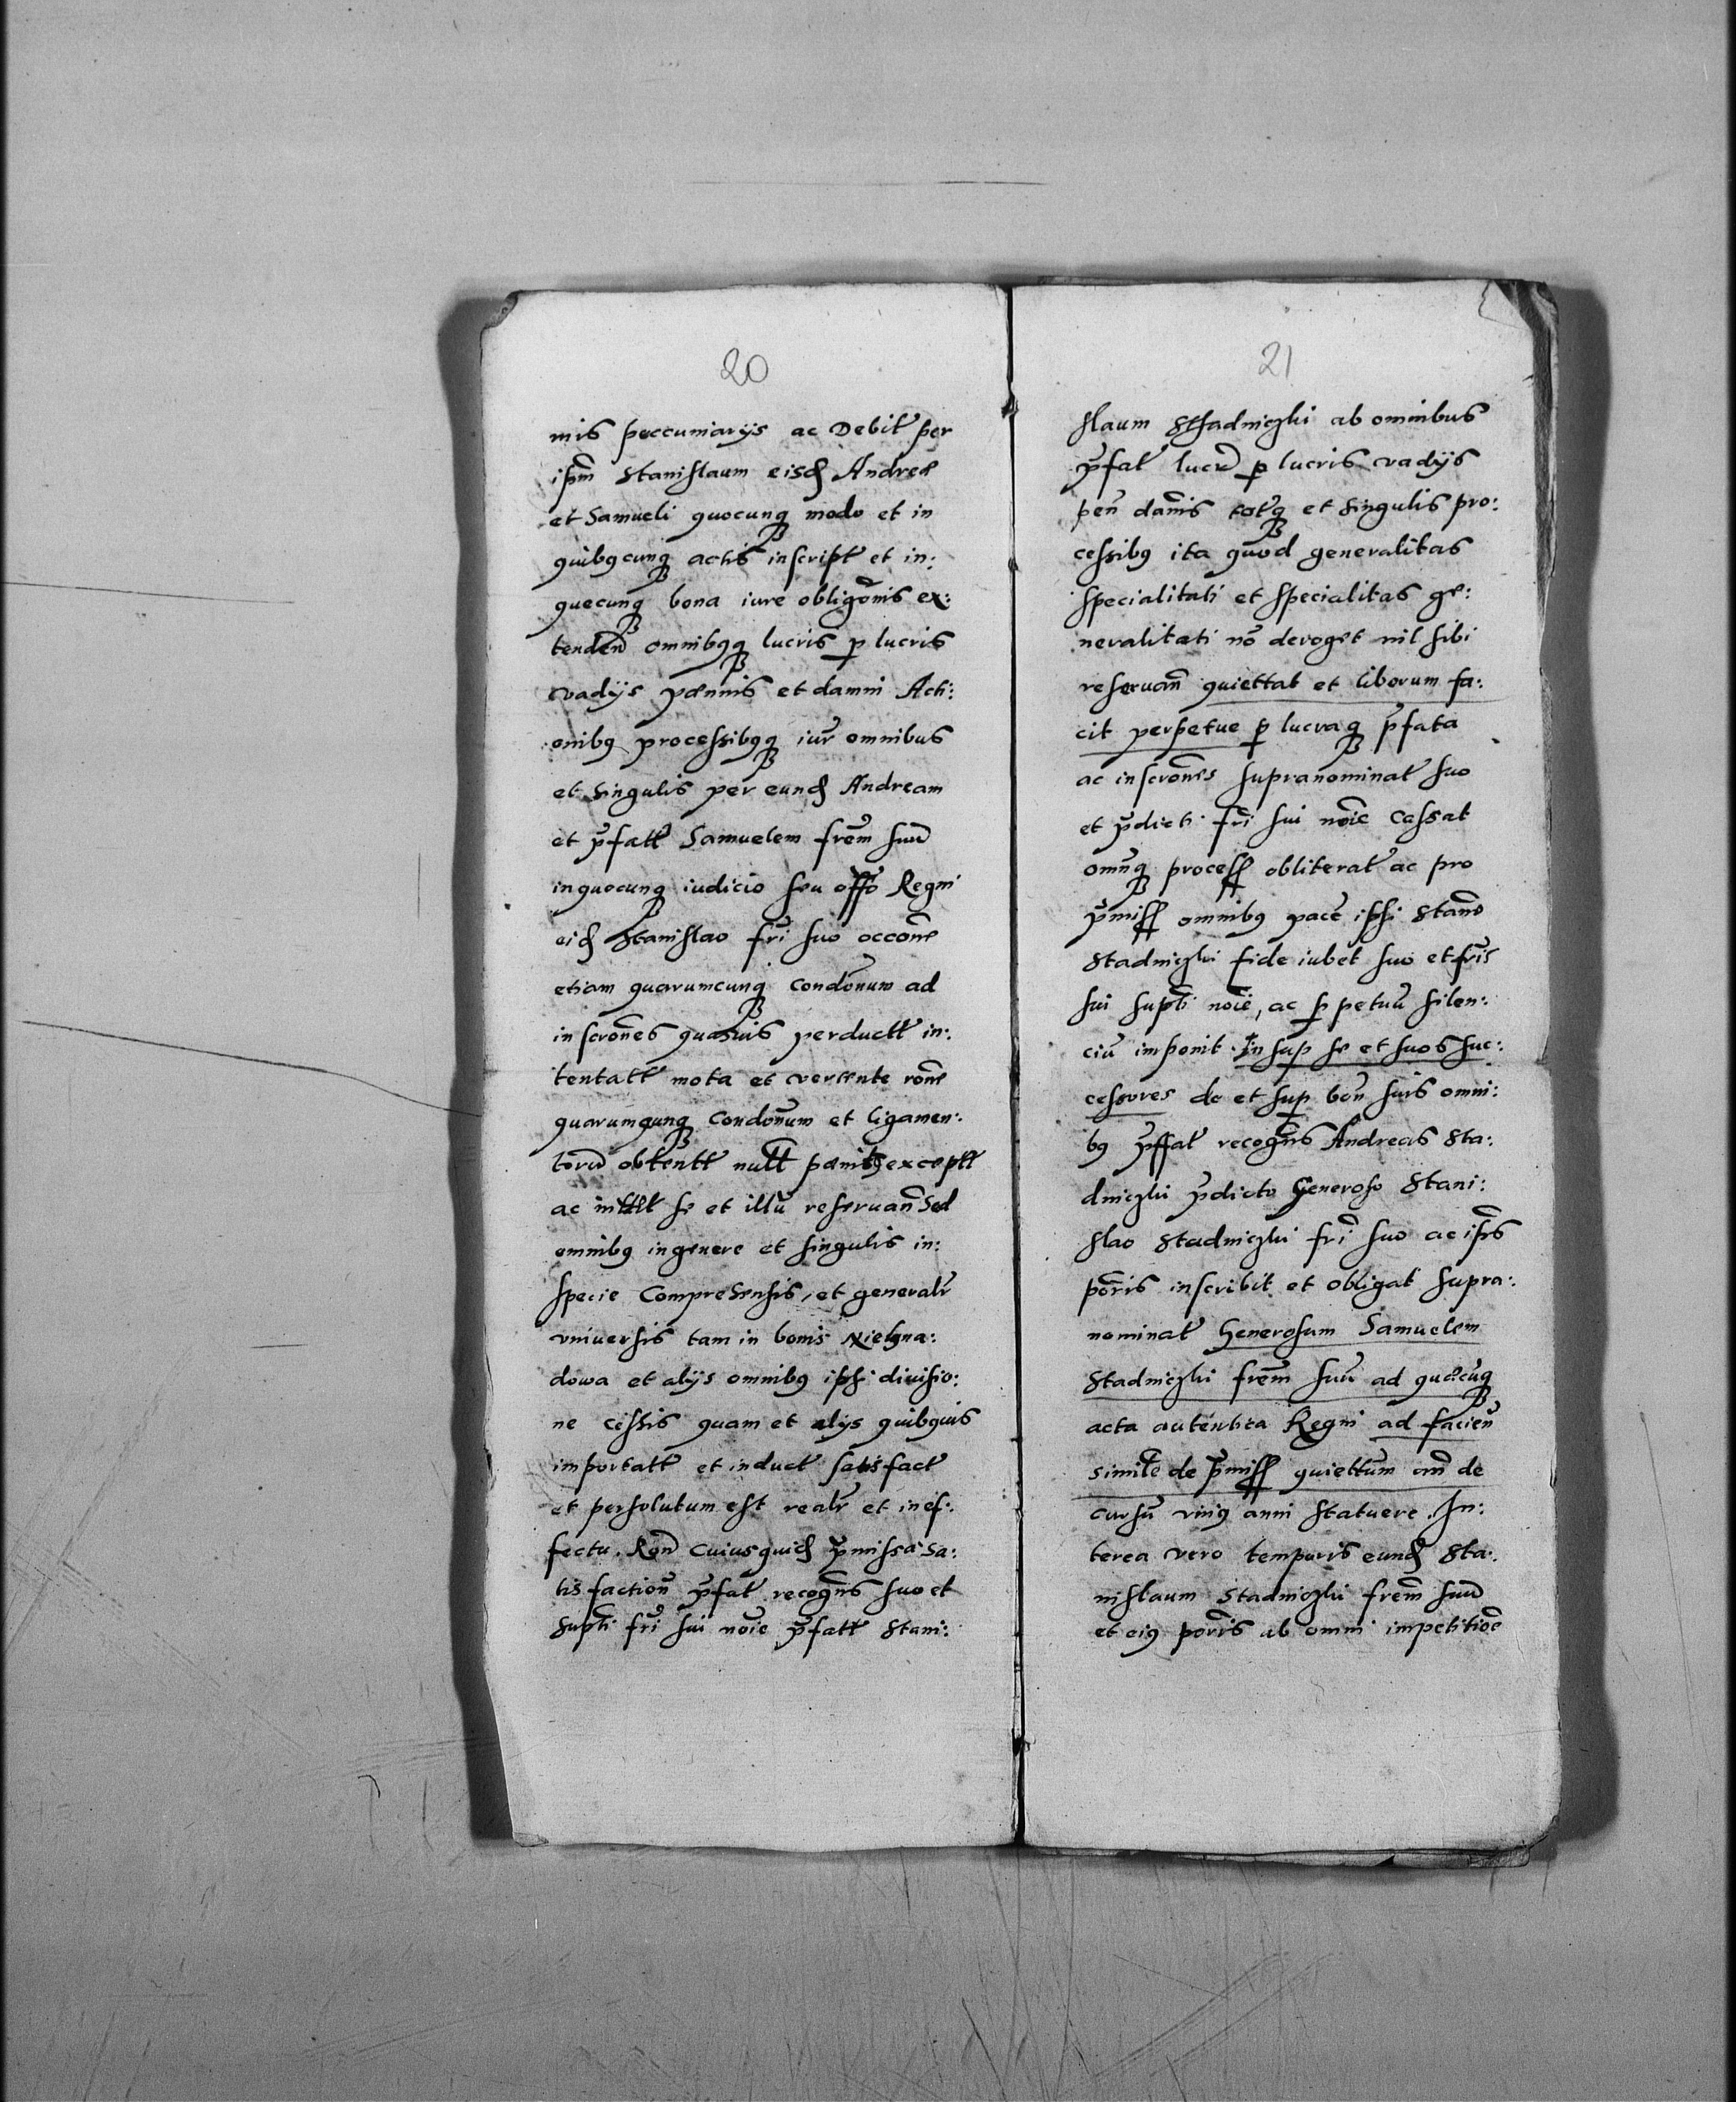 20
mis peccuniarijs ac Debit per
ipm̄ Stanislaum eisd Andree
et Samueli quocunq modo et in
quibqcunq actis inscript et in:
quecunq bona iure obligōnis ex:
tendeñ omnibqq lucris p lucris
vadijs pœnnis et damni Acti:
onibq processibqq iur omnibus
et singulis per eund Andream
et p̄fatt Samuelem frēm suū
inquocunq iudicio seu offo Regni
eid Stanislao frī suo occōne
etiam quarumcunq condōnum ad
inscrōnes quasuis perductt in:
tentatt mota et vertente rōne
quarumcunq condōnum et ligamen:
torū obtentt null pœnitq exceptt
ac se et illū reseruañ Sed
omnibq ingenere et singulis in:
specie Comprehensis, et generalr
vniuersis tam in bonis
dowa et alijs omnibq ipsi diuisio:
ne cessis quam et alijs quibquis
importatt et induct satisfact
et persolutum est realr et in ef:
fectu. Rōne cuiusquid p̄missa sa:
tisfactioñ p̄fat recogn̄s suo et
supti frī sui nōie p̄fatt Stani:
21
slaum Sthadniczki ab omnibus
p̄fat lucr p lucris vadijs
peñ dam̄is totq et singulis pro:
cessibq ita quod generalitas
specialitati et specialitas ge:
neralitati nō deroget nil sibi
reseruañ quiettat et liberum fa:
cit perpetue p lucraq p̄fata
ac inscrōnes supranominat suo
et p̄dicti frī sui nōie cessat
omnq process obliterat ac pro
p̄miss omnibq pacē ipsi Stano
Stadniczki fide iubet suo et frīs
sui supti nōie, ac p petuū silen:
ciū imponit. In sup se et suos suc:
cessores de et sup boñ suis omni:
bq p̄ffat recogn̄s Andreas Sta:
dniczki p̄dicto Generoso Stani:
slao Stadniczki frī suo ac ipīs
pōris inscribit et obligat supra:
nominat Generosum Samuelem
Stadniczki frēm suū ad quæcūq
acta autēntica Regni ad facieñ
simile de p̄miss quiettum an̄ de
cursū vniq anni statuere. In:
terea vero temporis eund Sta:
nislaum Stadniczki frēm suū
et eiq pōris ab omni impetitiōe